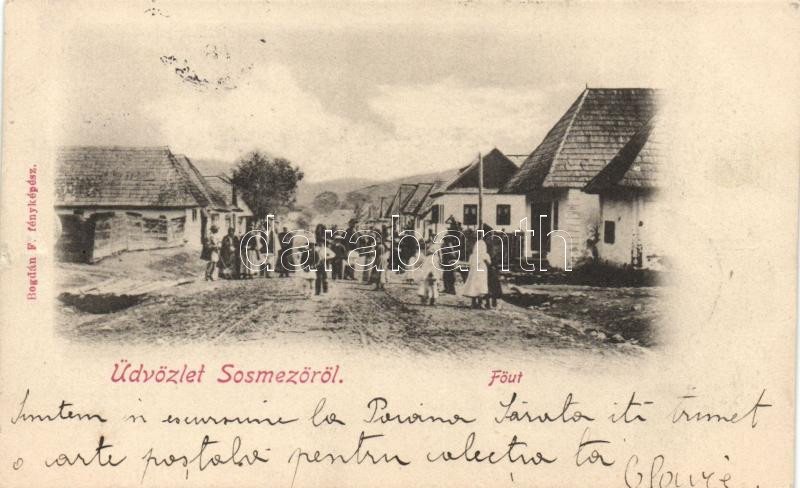 Bogdán F. fényképész.
darabanth
Üdvözlet Sosmezöröl.
Föut
Suntem in escursiune la Poiana Sărata iti trimet
o carte poștală pentru colecția ta